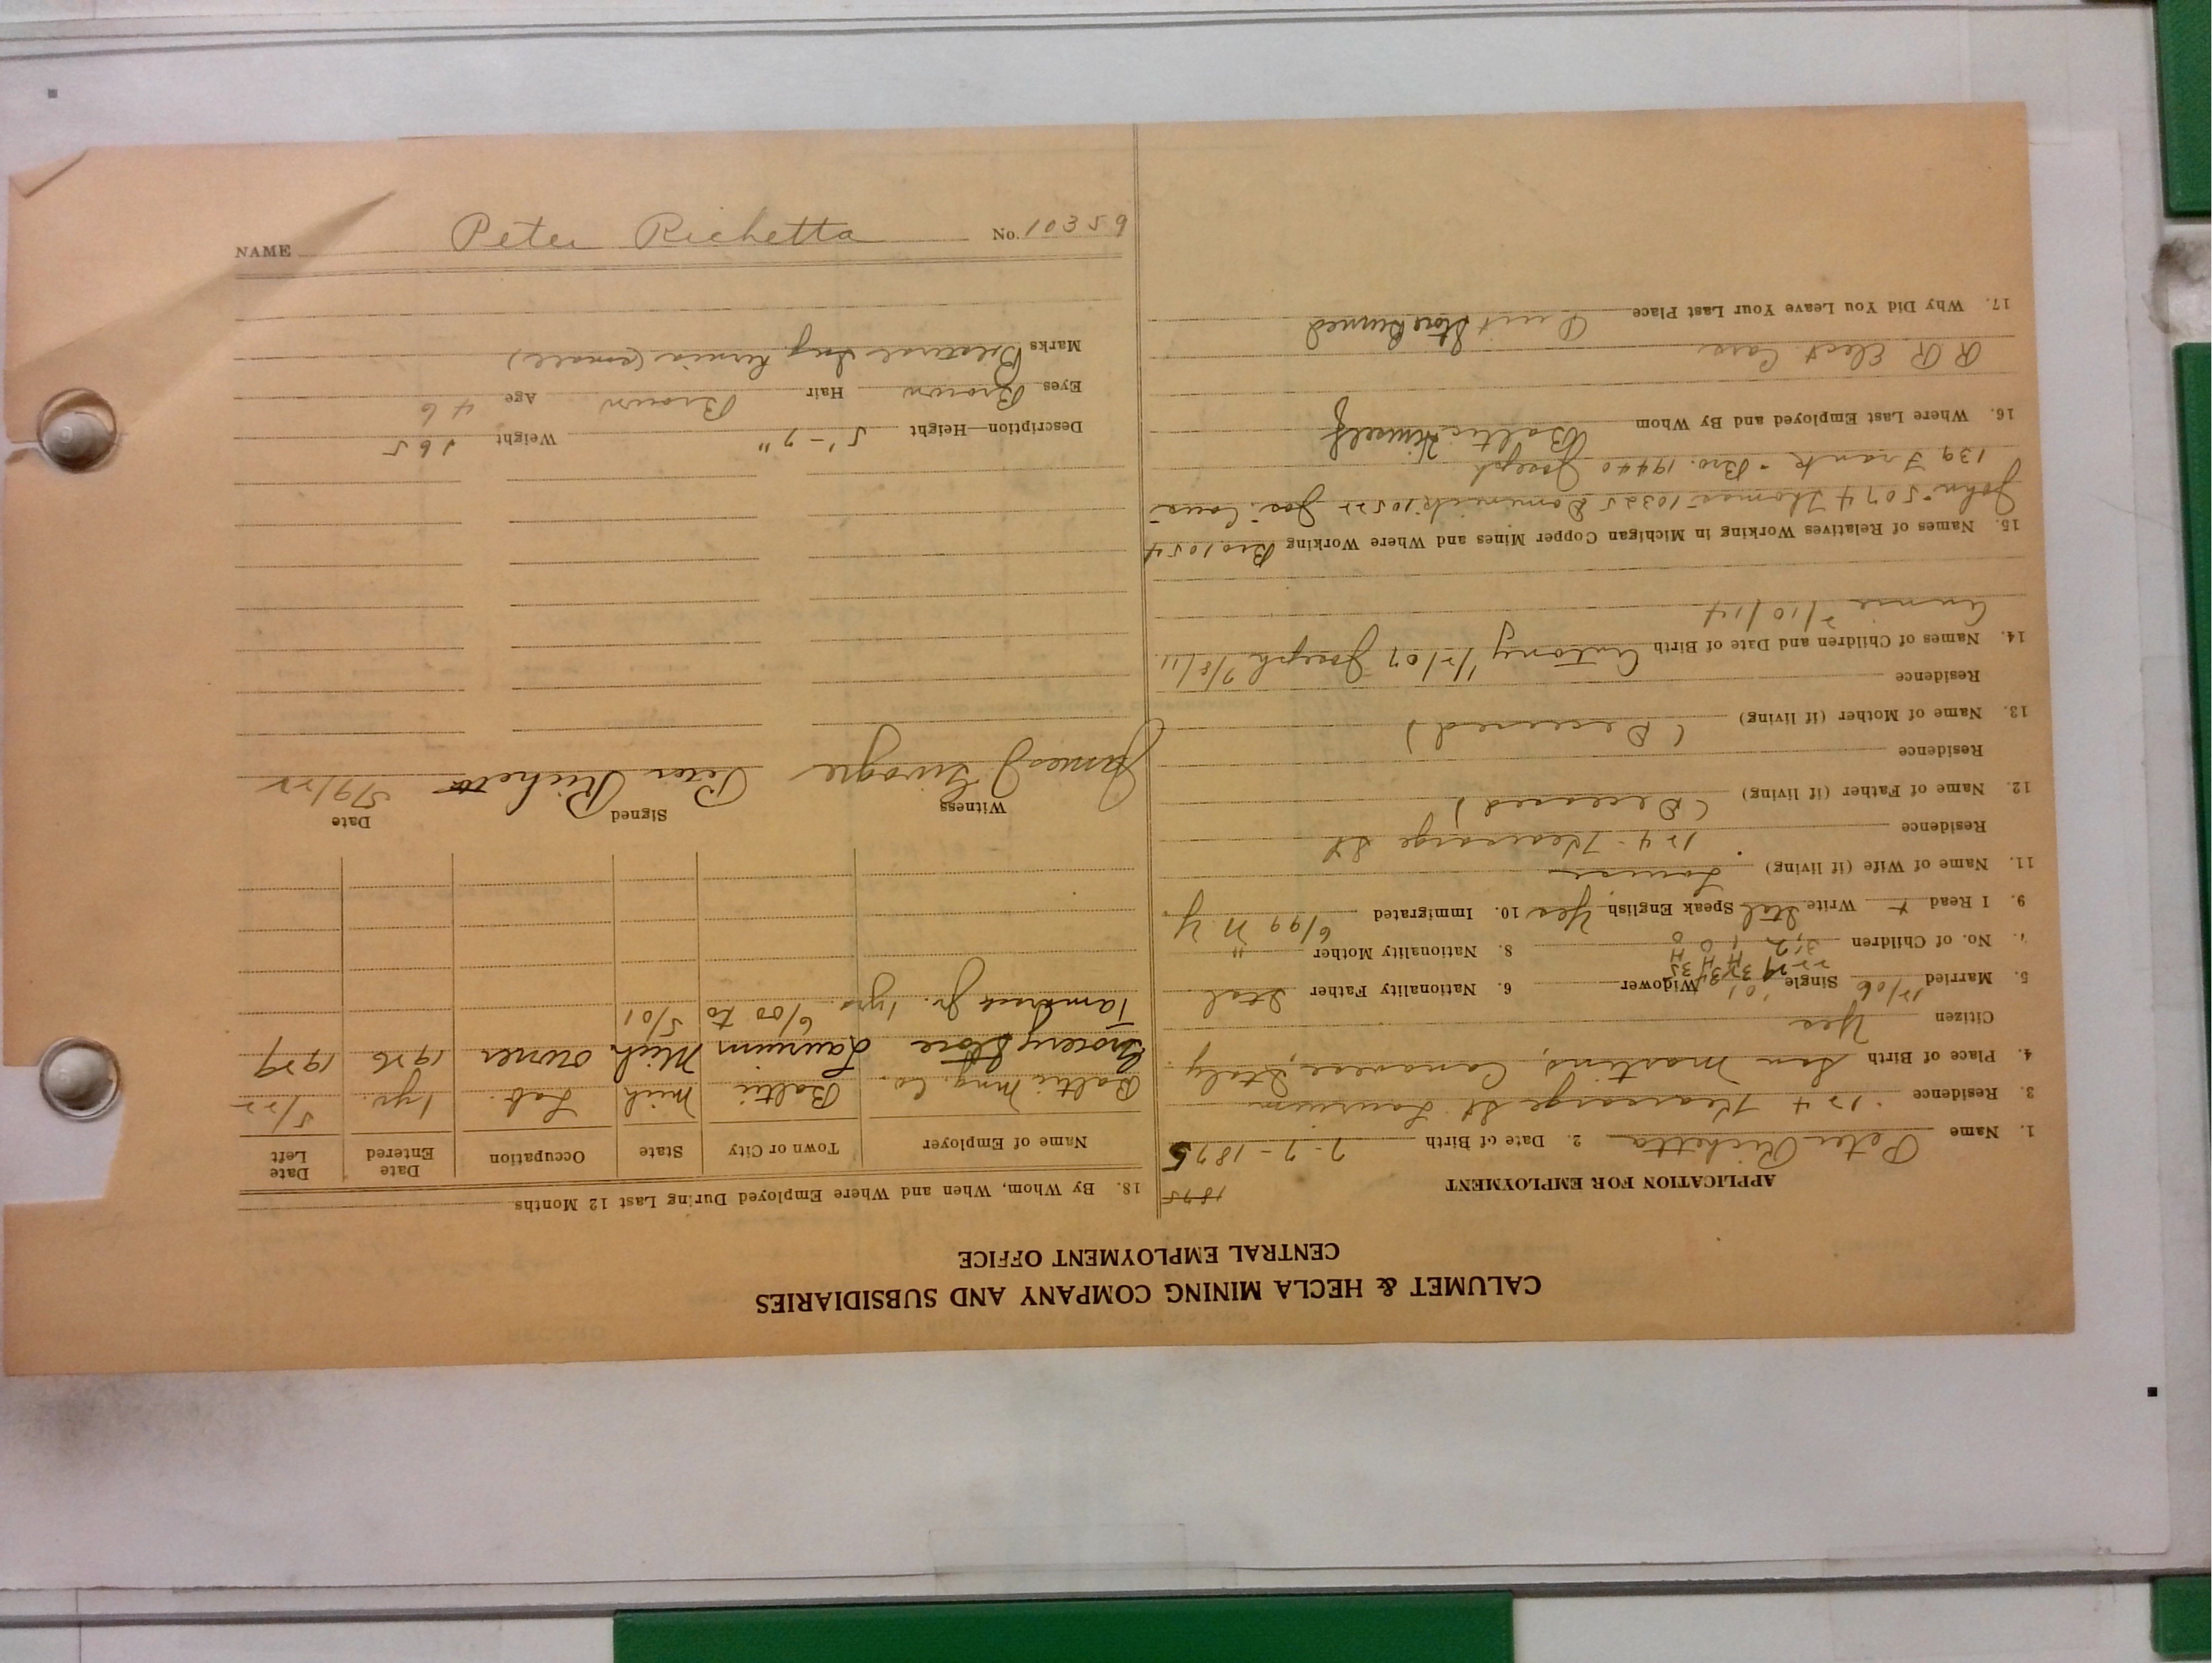 CALUMET & HECLA MINING COMPANY AND SUBSIDIARIES
CENTRAL EMPLOYMENT OFFICE
APPLICATION FOR EMPLOYMENT
1875
1. Name Peter Richetta 2. Date of Birth 7-7-1875
3. Residence 124 Kearsarge St Laurium
4. Place of Birth San Martino, Canavese, Italy
Citizen Yes
5. Married 12/06 Single Widower 6. Nationality Father Ital
No. of Children 8. Nationality Mother "
9. I Read + Write Ital Speak English Yes 10. Immigrated 6/99 N.Y
11. Name of Wife (if living) Louisa
Residence 124 - Kearsarge St
12. Name of Father (if living) (Deceased)
Residence
13. Name of Mother (if living) (Deceased)
Residence
14. Names of Children and Date of Birth Antony 1/2/07 Joseph 7/8/11
Annie 2/10/14
15. Names of Relatives Working in Michigan Copper Mines and Where Working Bro 1054
John - 5074 Thomas - 10325 Dominick 10522 Jos. Cous
139 Frank - Bro. 19440 Joseph
16. Where Last Employed and By Whom Baltic Himself
R R Elect Cars
17. Why Did You Leave Your Last Place Quit Store Burned
18. By Whom, When and Where Employed During Last 12 Months
Name of Employer Town or City State Occupation Date Entered Date Left
Baltic Mng. Co. Baltic Mich Lab. 1 yr. 5/22
Grocery Store Laurium Mich owner 1926 1929
Tamarack Jr. 1 yr. 6/00 to 5/01
Witness Signed Date
James J. Peter Richetta 5/9/22
Description—Height 5'-7" Weight 165
Eyes Brown Hair Brown Age 46
Marks Bilateral Ing hernia (small)
NAME Peter Richetta No. 10359